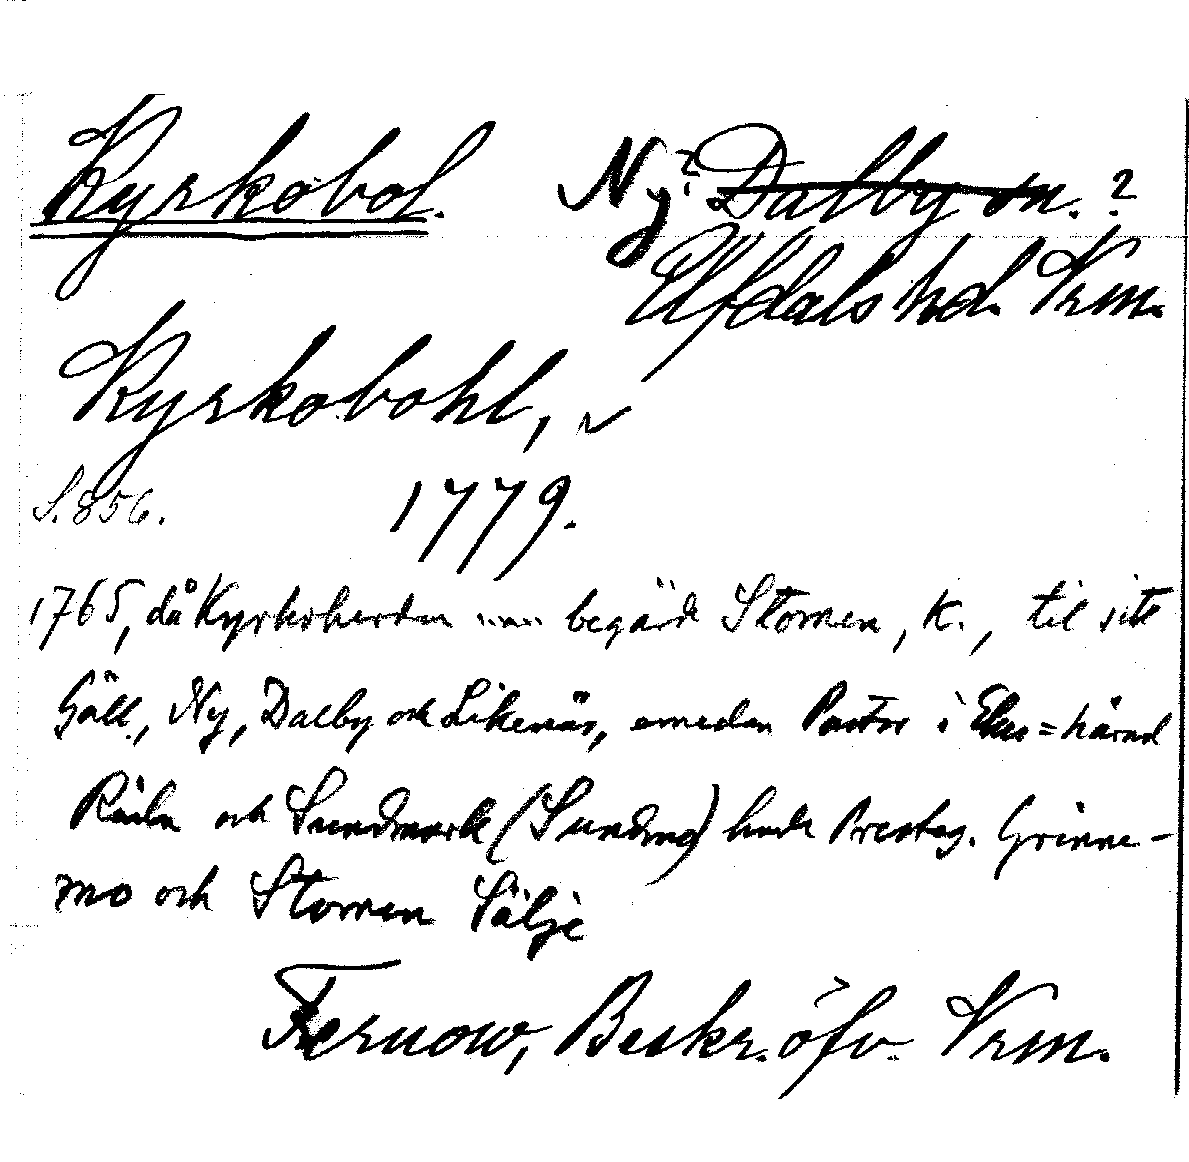 Kyrkobol. Ny? Dalby sn. ?
Elfdals hd. Vrm.
Kyrkobohl,
S. 856. 1779.
1765, då Kyrkoherden ..... begärd Stomen, K., til sitt
Gäll, Ny, Dalby och Likenäs, emedan Pastor i Elfs=härad
och Sundmark (Sundmo) hade Prestag. Grinne-
mo och Stomen Sälje
Fernow, Beskr. öfv. Vrm.